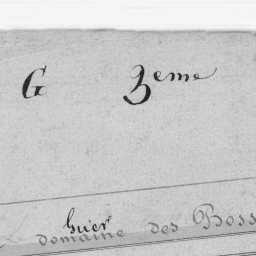 G 3eme
huier
domaine des Boss